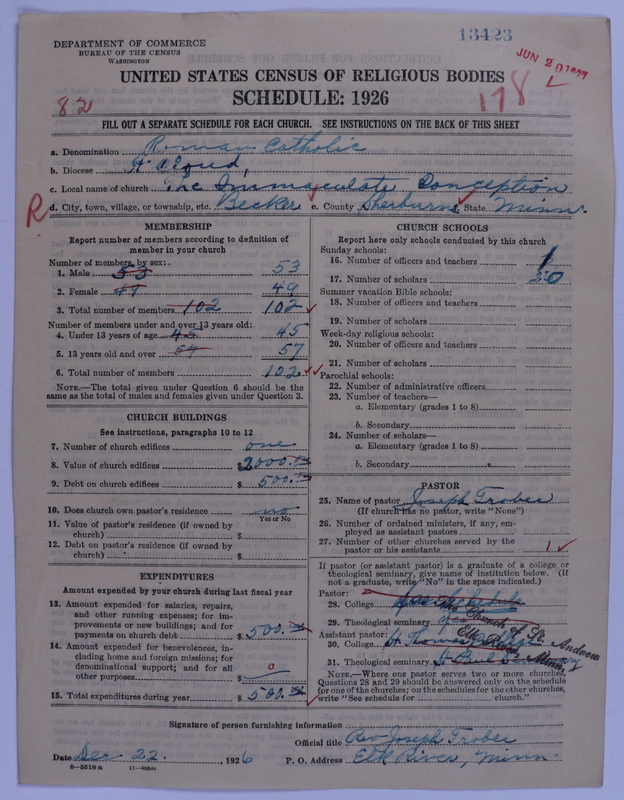 13423
JUN 20 1927
DEPARTMENT OF COMMERCE
BUREAU OF THE CENSUS
WASHINGTON
UNITED STATES CENSUS OF RELIGIOUS BODIES
SCHEDULE: 1926
82
178
L
FILL OUT A SEPARATE SCHEDULE FOR EACH CHURCH. SEE INSTRUCTIONS ON THE BACK OF THIS SHEET
a. Denomination Roman Catholic
b. Diocese St Cloud,
c. Local name of church The Immaculate Conception
R d. City, town, village, or township, etc. Becker e. County Sherburne, State Minn.
MEMBERSHIP
Report number of members according to definition of member in your church
Number of members, by sex:
1. Male 53 53
2. Female 49 49
3. Total number of members 102 102
Number of members under and over 13 years old:
4. Under 13 years of age 45 45
5. 13 years old and over 57
6. Total number of members 102
NOTE.—The total given under Question 6 should be the
same as the total of males and females given under Question 3.
CHURCH BUILDINGS
See instructions, paragraphs 10 to 12
7. Number of church edifices one
8. Value of church edifices $ 2000.
9. Debt on church edifices $ 500.
10. Does church own pastor's residence no
Yes or No
11. Value of pastor's residence (if owned by
church) $
12. Debt on pastor's residence (if owned by
church) $
EXPENDITURES
Amount expended by your church during last fiscal year
13. Amount expended for salaries, repairs,
and other running expenses; for im-
provements or new buildings; and for
payments on church debt $ 500.
14. Amount expended for benevolences, in-
cluding home and foreign missions; for
denominational support; and for all
other purposes $ 0
15. Total expenditures during year $ 500.
CHURCH SCHOOLS
Report here only schools conducted by this church
Sunday schools:
16. Number of officers and teachers 1
17. Number of scholars 20
Summer vacation Bible schools:
18. Number of officers and teachers
19. Number of scholars
Week-day religious schools:
20. Number of officers and teachers
21. Number of scholars
Parochial schools:
22. Number of administrative officers
23. Number of teachers—
a. Elementary (grades 1 to 8)
b. Secondary
24. Number of scholars—
a. Elementary (grades 1 to 8)
b. Secondary
PASTOR
25. Name of pastor Joseph Trobec
(If church has no pastor, write "None")
26. Number of ordained ministers, if any, em-
ployed as assistant pastors
27. Number of other churches served by the
pastor or his assistants 1
If pastor (or assistant pastor) is a graduate of a college or
theological seminary, give name of institution below. (If
not a graduate, write "No" in the space indicated.)
Pastor:
28. College
29. Theological seminary
See Church of St. Andrew
Elk River, Minn
Assistant pastor:
30. College St. Thomas
31. Theological seminary St Paul Seminary
NOTE.—Where one pastor serves two or more churches,
Questions 28 and 29 should be answered only on the schedule
for one of the churches; on the schedules for the other churches,
write "See schedule for church."
Signature of person furnishing information
Official title Rev Joseph Trobec
Date Dec 22, 1926 P. O. Address Elk River, Minn
8—5518 a